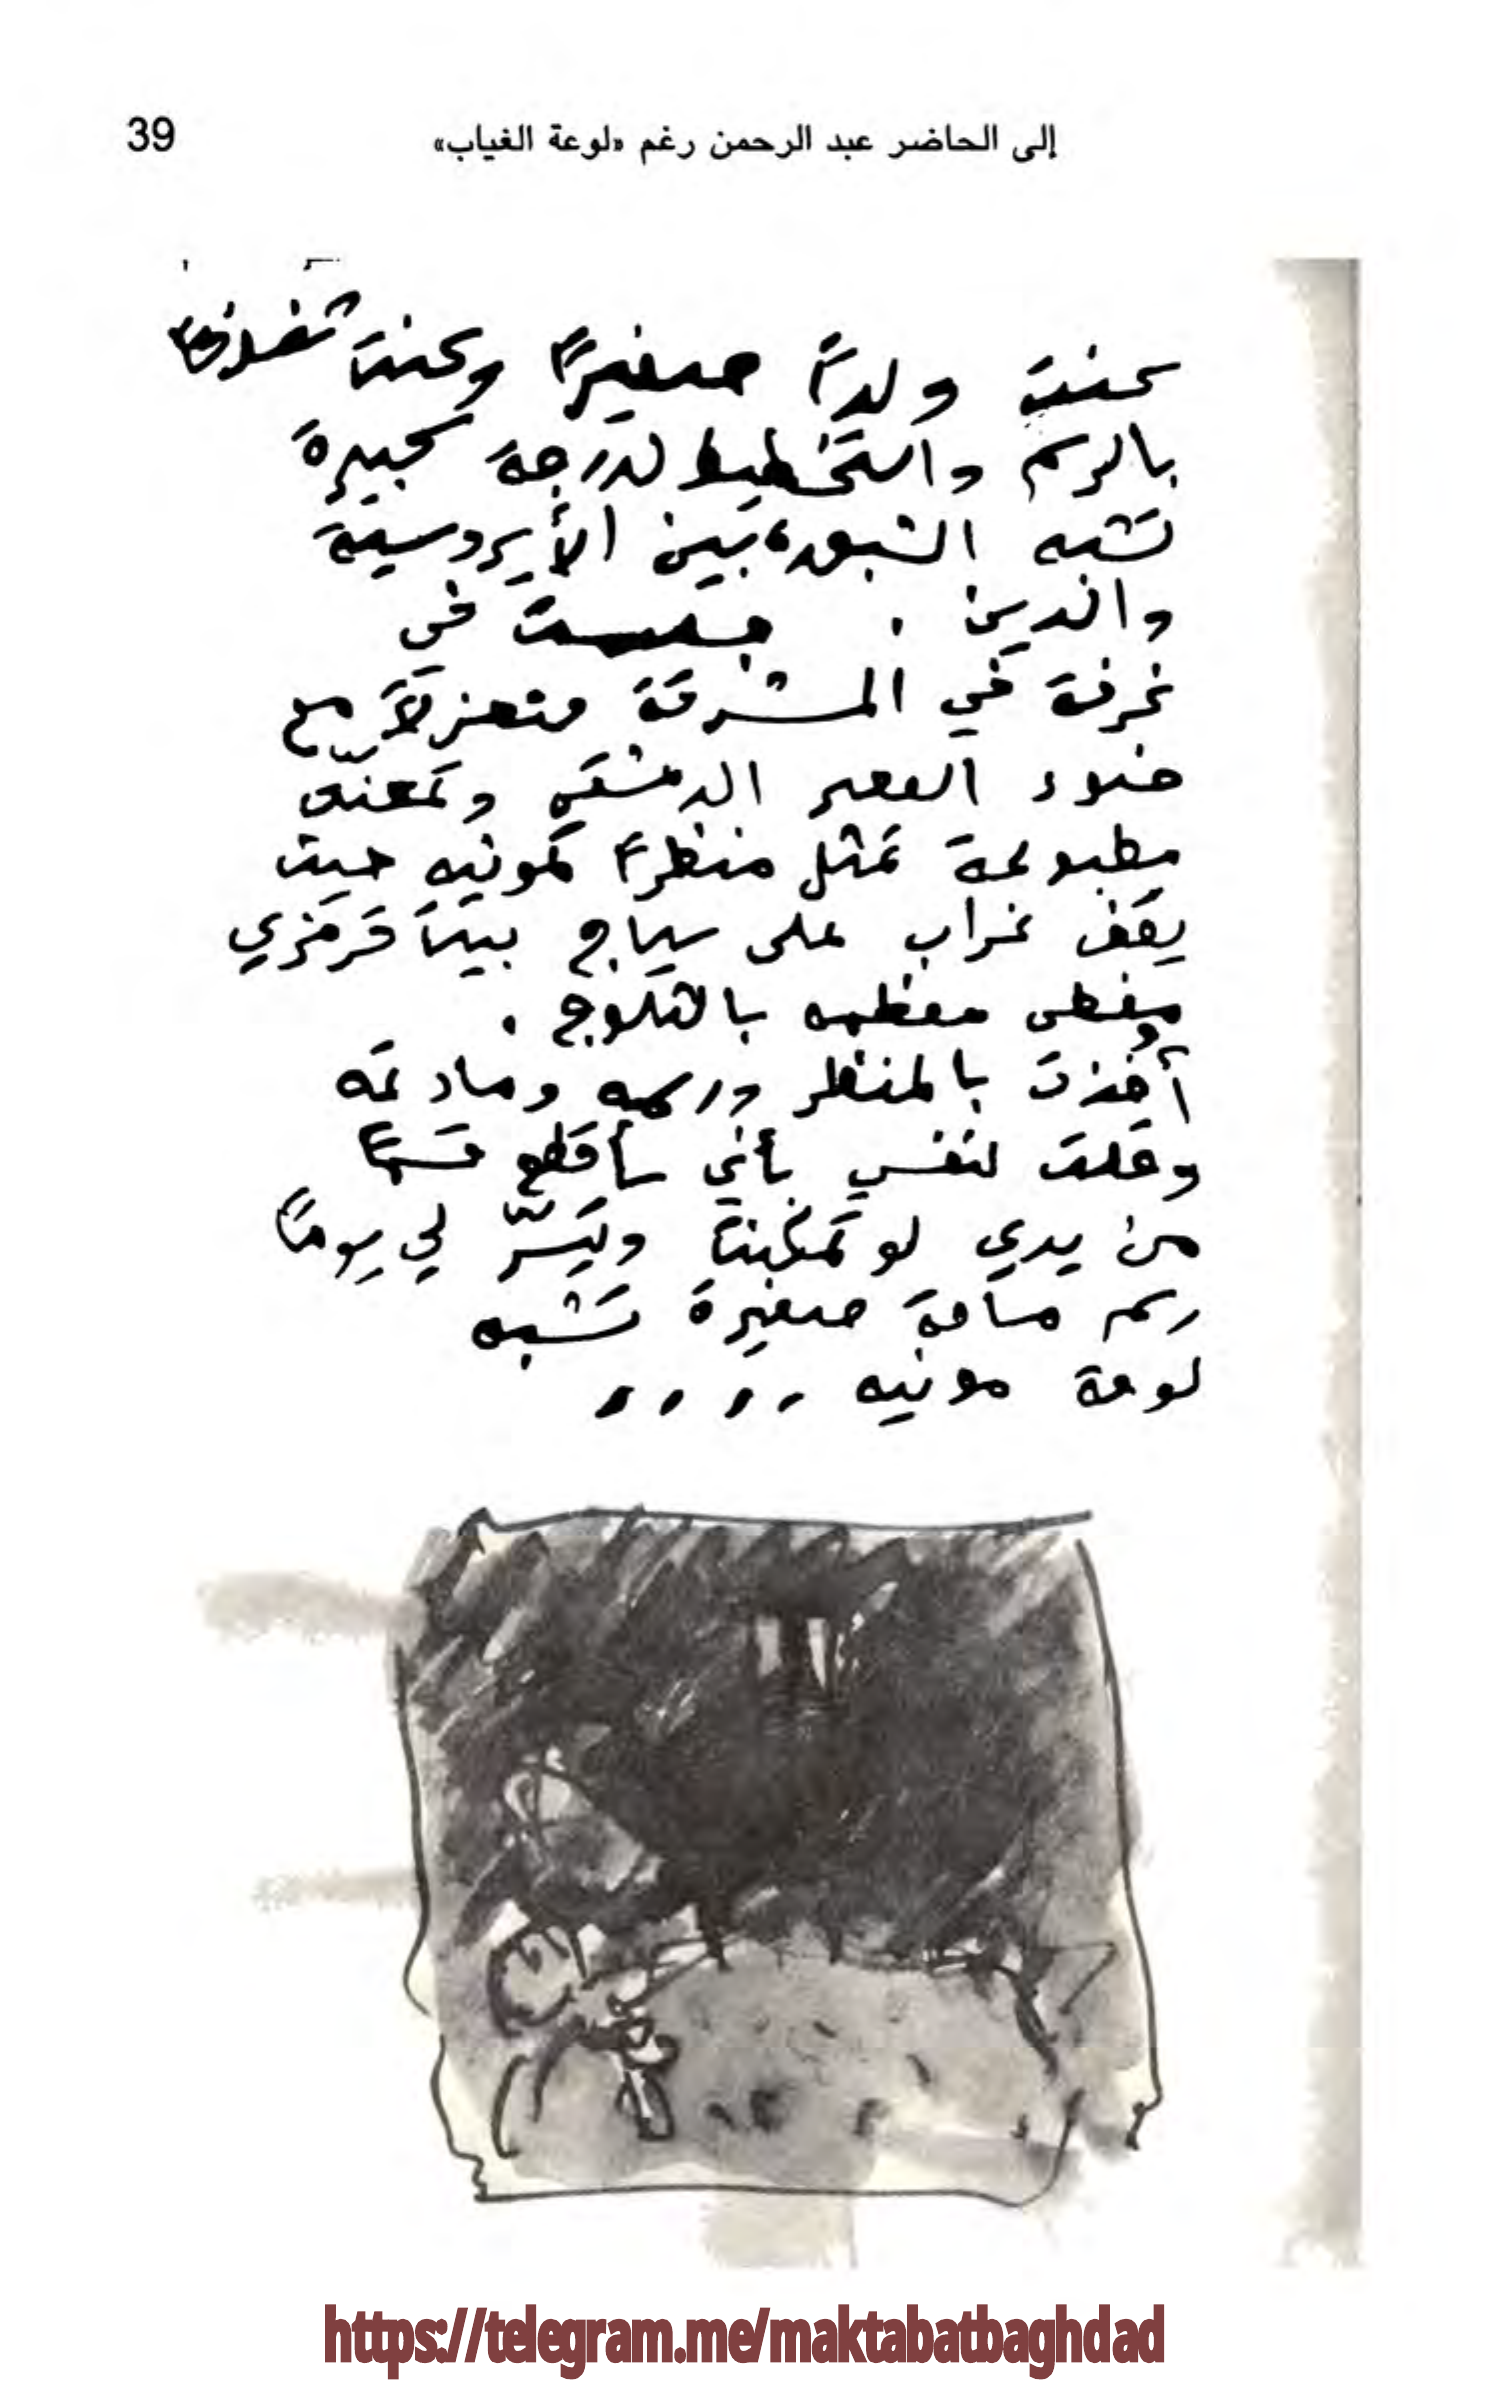 إلى الحاضر عبد الرحمن رغم «لوعة الغياب» 39
كنت ولداً صغيراً وكنت شغوفاً
بالرسم والتخطيط لدرجة كبيرة
تشبه الشبق، بين الأيروسية
والدين . جلست في
غرفة في المشرقة منعزلاً مع
ضوء العصر الدمشقي وتمعنت
مطبوعة تمثل منظراً لمونيه حيث
يقف غراب على سياج بيت قرمزي
مغطى معظمه بالثلوج .
أُخذت بالمنظر ورسمه ومادته
وقلت لنفسي بأني سأقطع قسماً
من يدي لو تمكنت وتيسّر لي يوماً
رسم مساحة صغيرة تشبه
لوحة مونيه ....
https://telegram.me/maktabatbaghdad